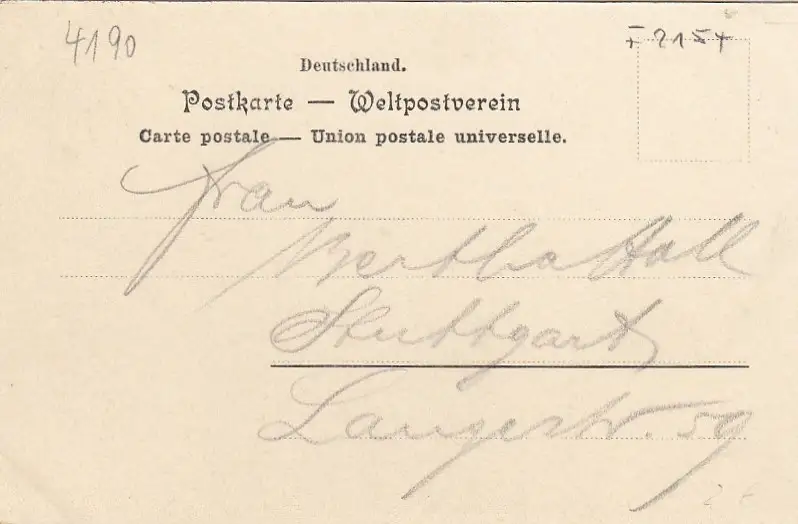 4190
Deutschland.
Postkarte — Weltpostverein
Carte postale — Union postale universelle.
Frau
Bertha Holl
Stuttgart
Langestr. 59